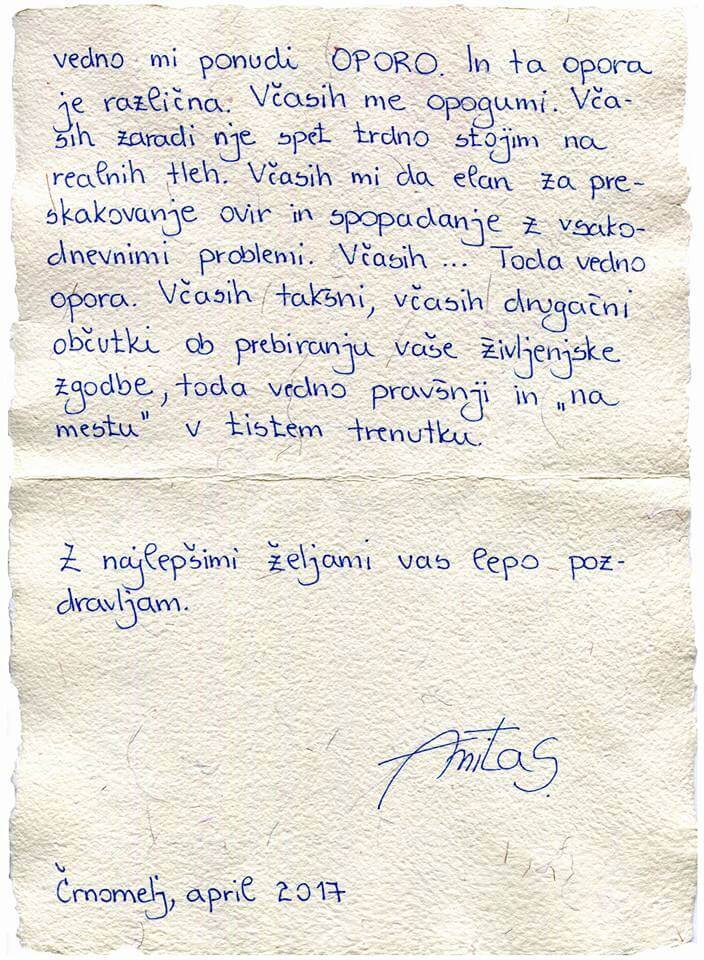 vedno mi ponudi OPORO. In ta opora
je različna. Včasih me opogumi. Vča-
sih zaradi nje spet trdno stojim na
realnih tleh. Včasih mi da elan za pre-
skakovanje ovir in spopadanje z vsako-
dnevnimi problemi. Včasih ... Toda vedno
opora. Včasih takšni, včasih drugačni
občutki ob prebiranju vaše življenjske
zgodbe, toda vedno pravšnji in „na
mestu" v tistem trenutku.
Z najlepšimi željami vas lepo poz-
dravljam.
Anita S.
Črnomelj, april 2017